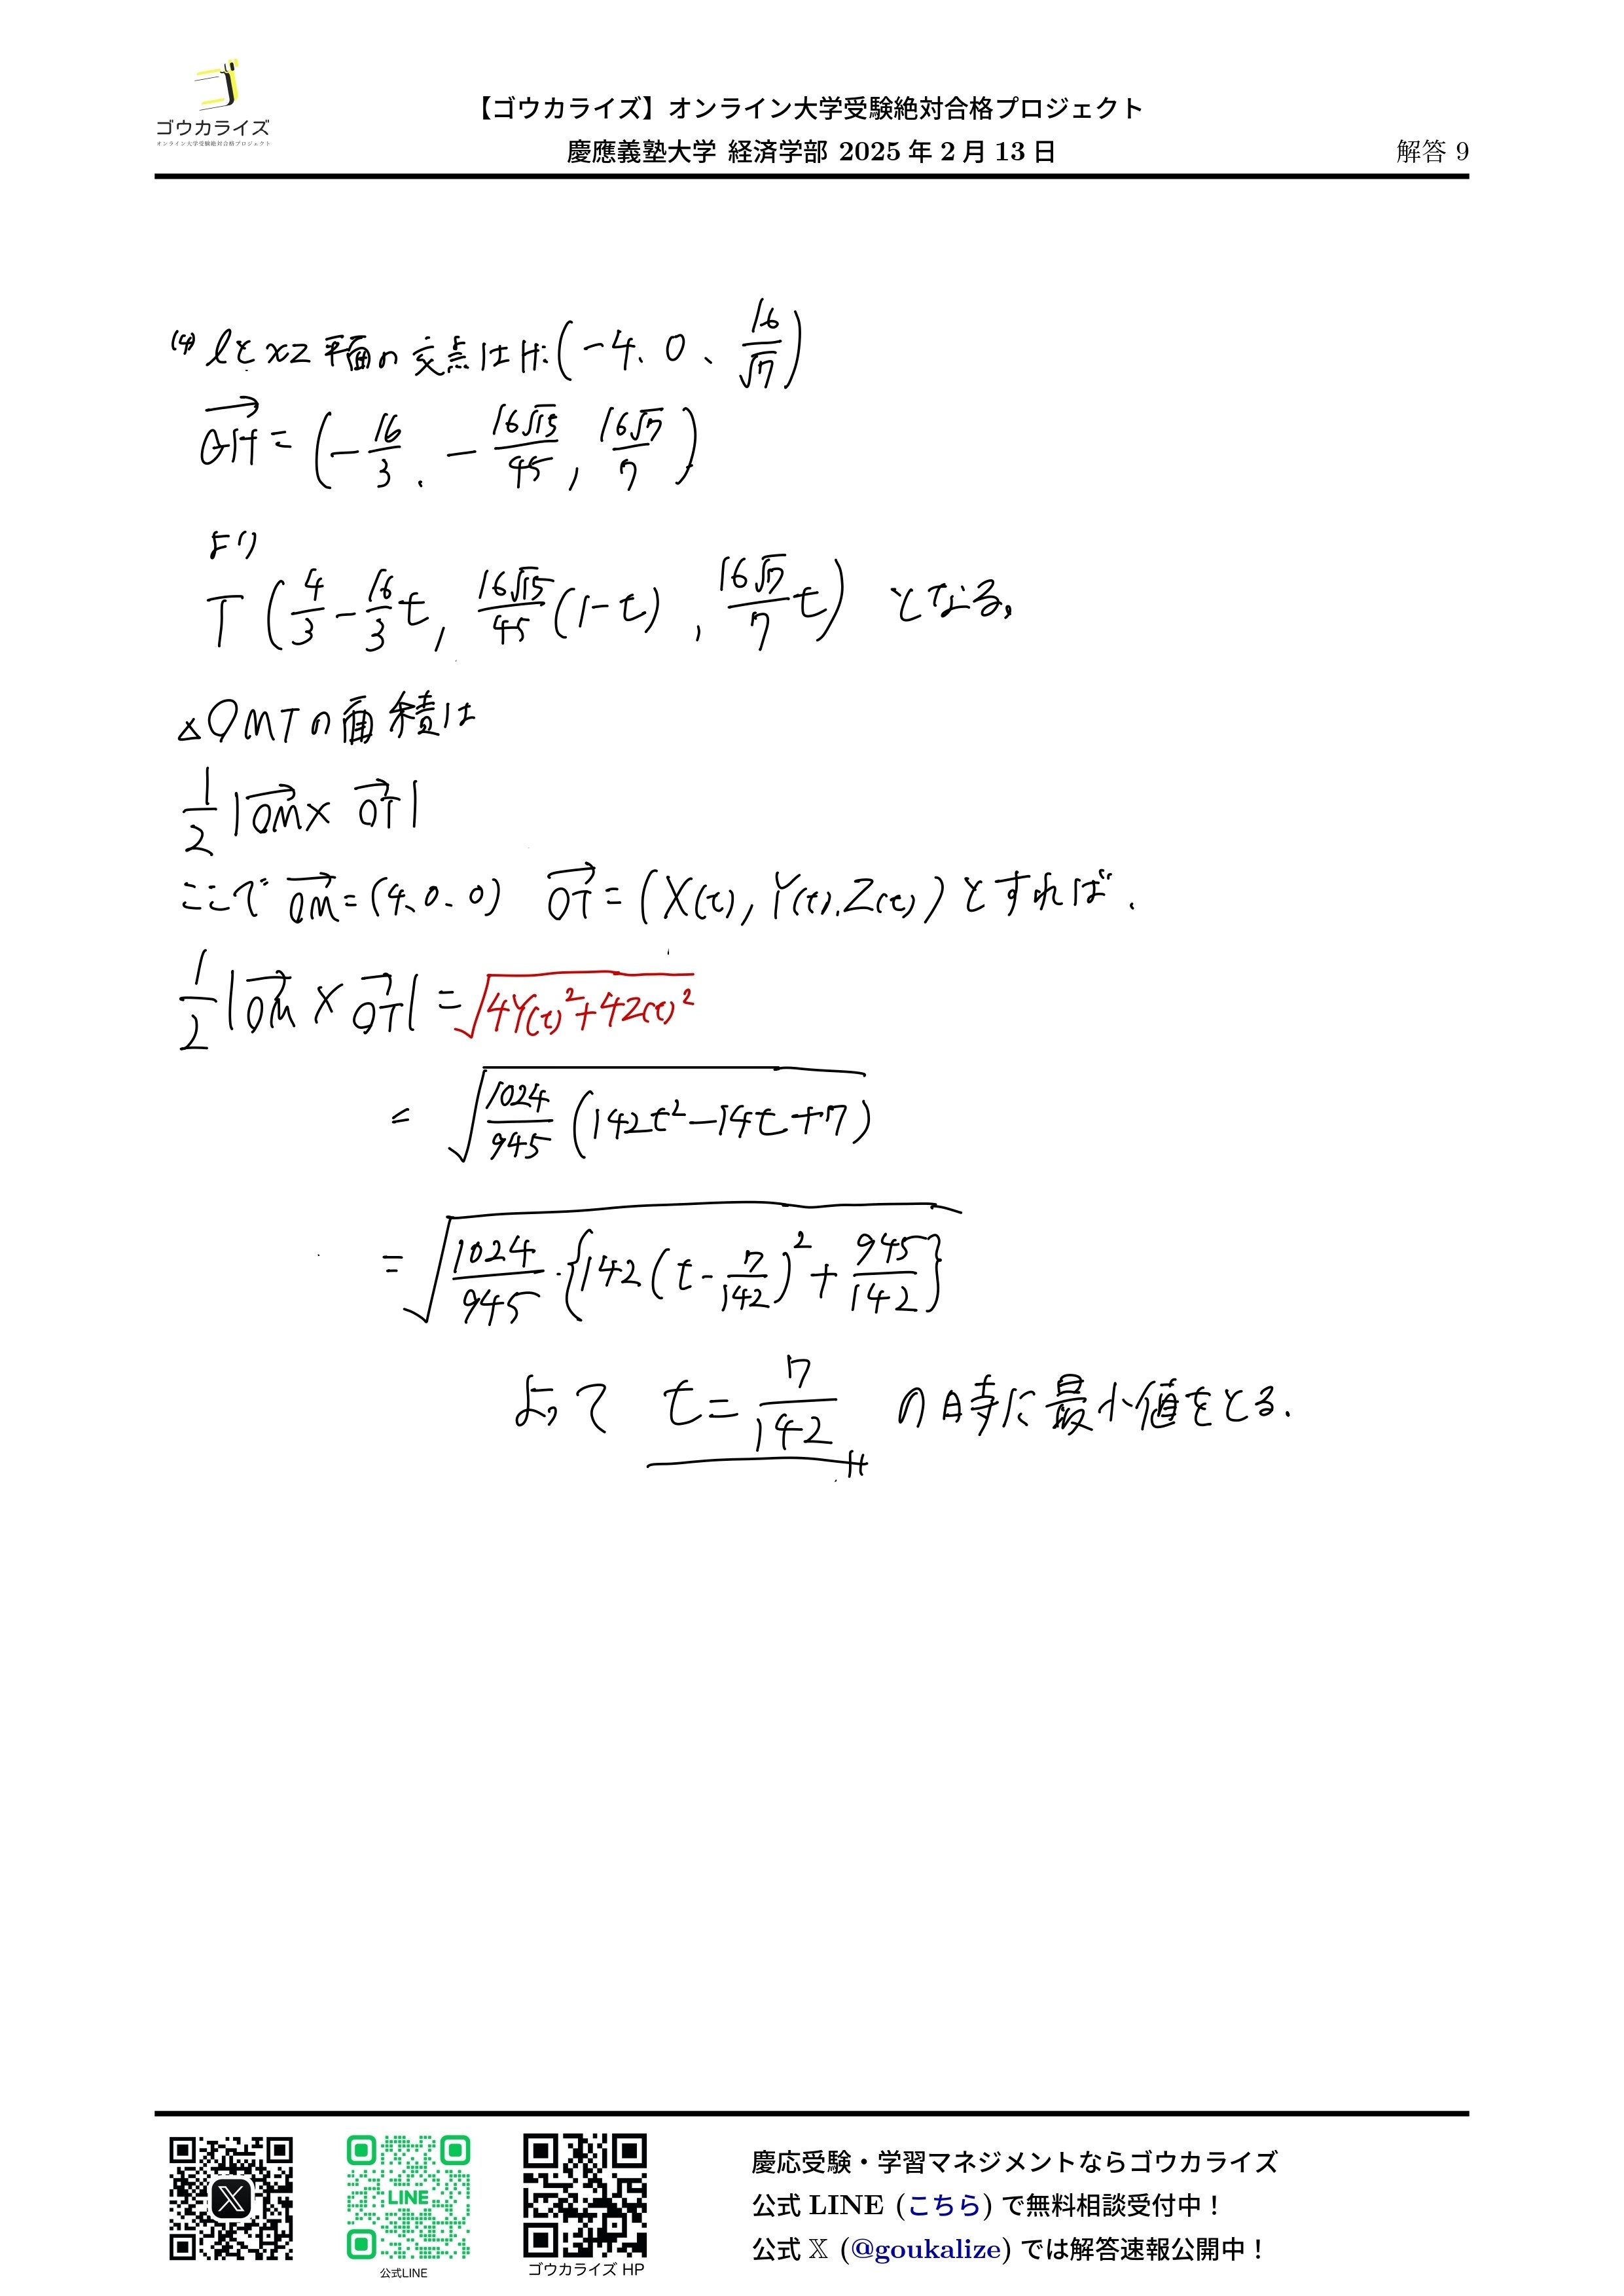 ゴウカライズ
オンライン大学受験絶対合格プロジェクト
【ゴウカライズ】オンライン大学受験絶対合格プロジェクト
慶應義塾大学 経済学部 2025 年 2 月 13 日
解答 9
(4) lとxz平面の交点はH:(-4、0、16/√7)
GH→ = (-16/3、-16√15/45, 16√7/7)
より
T(4/3-16/3t, 16√15/45(1-t), 16√7/7t) となる。
△OMTの面積は
1/2|OM→×OT→|
ここで OM→=(4、0、0) OT→=(X(t), Y(t), Z(t))とすれば、
1/2|OM→×OT→|=√(4Y(t)²+4Z(t)²)
=√(1024/945(142t²-14t+7))
=√(1024/945・{142(t-7/142)²+945/142})
よって t=7/142 の時に最小値をとる.
慶応受験・学習マネジメントならゴウカライズ
公式 LINE (こちら) で無料相談受付中！
公式 𝕏 (@goukalize) では解答速報公開中！
LINE
公式LINE
ゴウカライズ HP